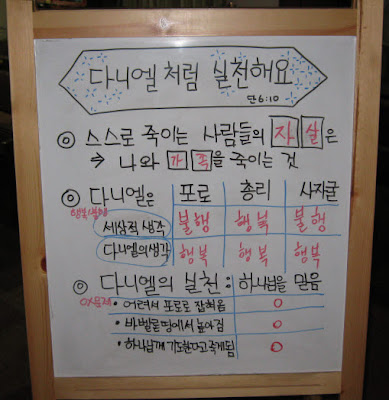 다니엘처럼 실천해요
단6:10
◎ 스스로 죽이는 사람들의 자살은
⇒ 나와 가족을 죽이는 것
◎ 다니엘은 포로 총리 사자굴
행복/불행
세상적 생각 불행 행복 불행
다니엘의생각 행복 행복 행복
◎ 다니엘의 실천 : 하나님을 믿음
OX문제
• 어려서 포로로 잡혀옴 O
• 바벨론땅에서 높아짐 O
• 하나님께 기도한다고 죽게됨 O